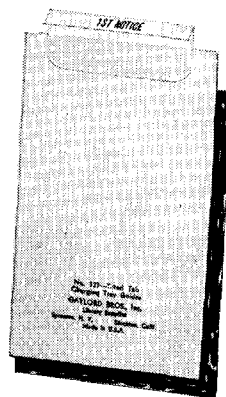 1ST NOTICE
No. 127—Steel Tab
Charging Tray Guides
GAYLORD BROS., Inc.
Library Supplies
Syracuse, N. Y. Stockton, Calif.
Made in U.S.A.